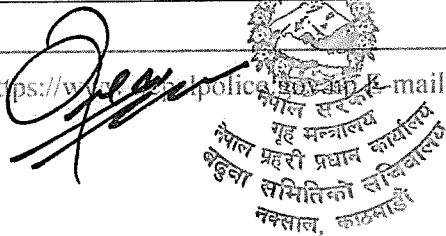 https://www.nepalpolice.gov.np E-mail
नेपाल सरकार
गृह मन्त्रालय
नेपाल प्रहरी प्रधान कार्यालय
बढुवा समितिको सचिवालय
नक्साल, काठमाडौं